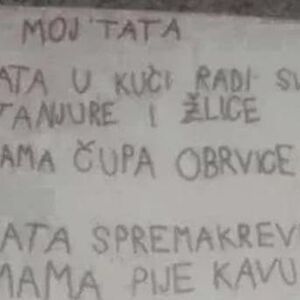 MOJ TATA
ATA U KUČI RADI SV
TANJURE I ŽLICE
AMA ČUPA OBRVICE
ATA SPREMAKREV
MAMA PIJE KAVU